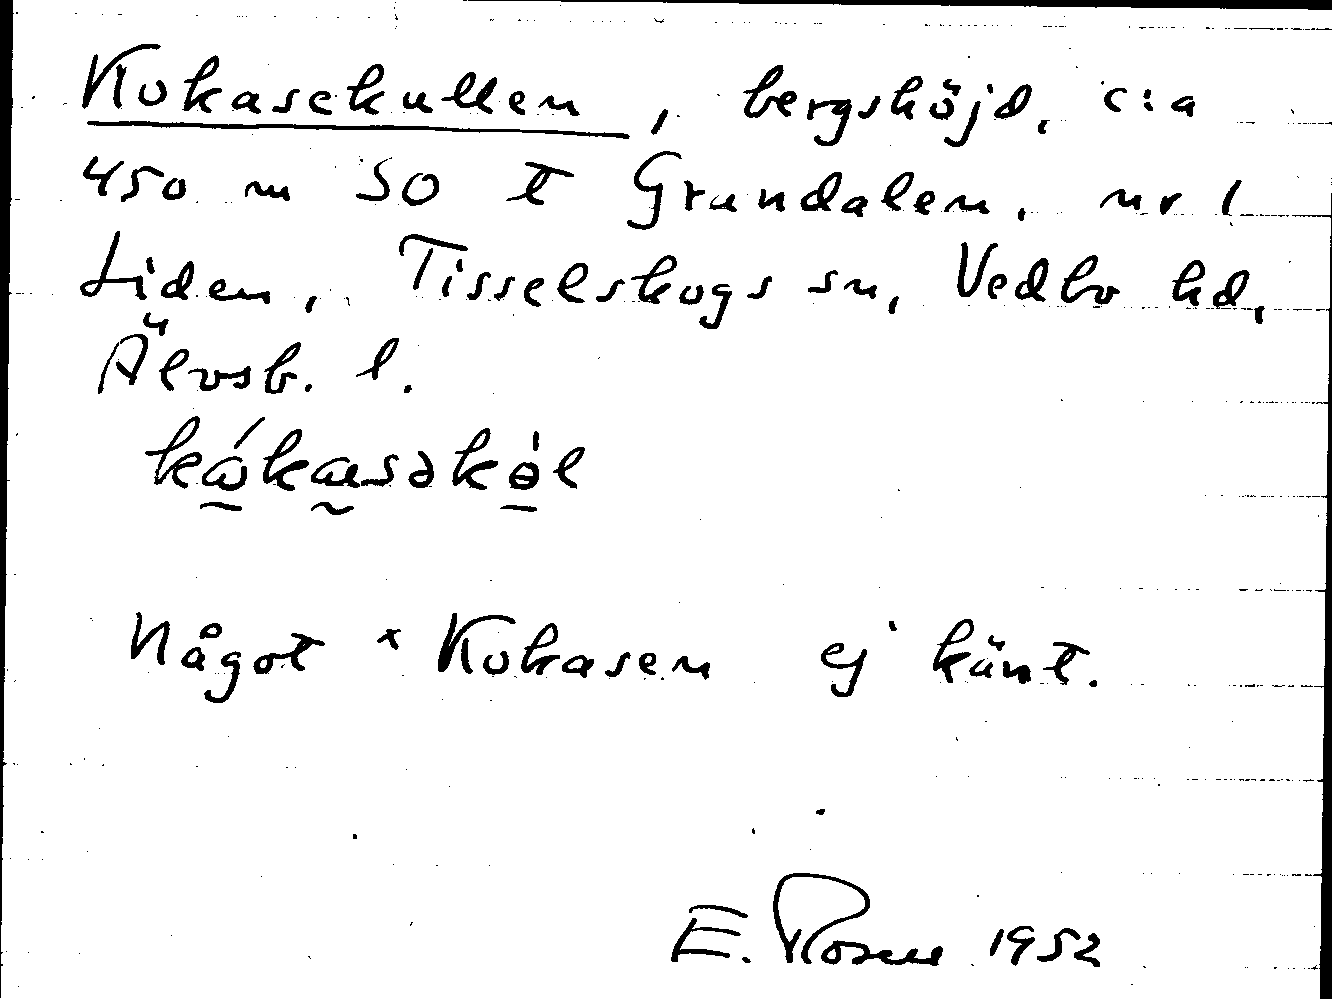 Kokasekullen, bergshöjd, c:a
450 m SO t Grundalen, nr 1
Liden, Tisselskogs sn, Vedbo hd,
Älvsb. l.
Något *Kokasen ej känt.
E. Rosell 1952